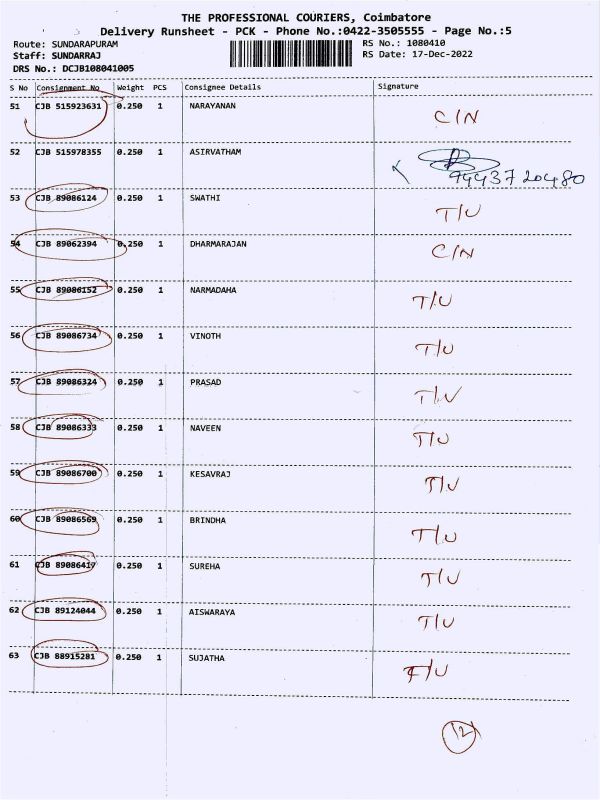 THE PROFESSIONAL COURIERS, Coimbatore
Delivery Runsheet - PCK - Phone No.:0422-3505555 - Page No.:5
Route: SUNDARAPURAM RS No.: 1080410
Staff: SUNDARRAJ RS Date: 17-Dec-2022
DRS No.: DCJB108041005
S No Consignment No Weight PCS Consignee Details Signature
51 CJB 515923631 0.250 1 NARAYANAN C/N
52 CJB 515978355 0.250 1 ASIRVATHAM 9443720480
53 CJB 89086124 0.250 1 SWATHI T/U
54 CJB 89062394 0.250 1 DHARMARAJAN C/N
55 CJB 89086152 0.250 1 NARMADAHA T/U
56 CJB 89086734 0.250 1 VINOTH T/U
57 CJB 89086324 0.250 1 PRASAD T/U
58 CJB 89086333 0.250 1 NAVEEN T/U
59 CJB 89086700 0.250 1 KESAVRAJ T/U
60 CJB 89086569 0.250 1 BRINDHA T/U
61 CJB 89086417 0.250 1 SUREHA T/U
62 CJB 89124044 0.250 1 AISWARAYA T/U
63 CJB 88915281 0.250 1 SUJATHA T/U
12